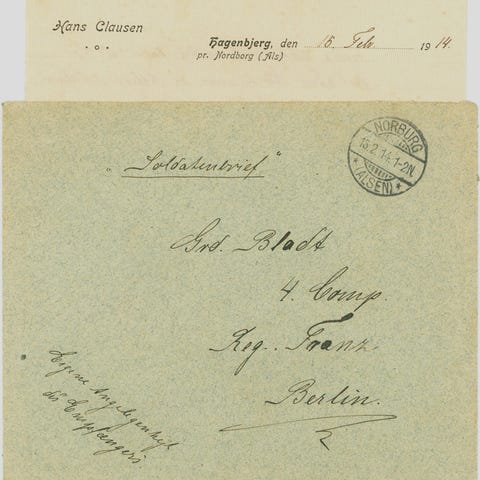 Hans Clausen
Hagenbjerg, den 15. Feb. 1914.
pr. Nordborg (Als)
NORBURG
15.2.14.1-2N.
* (ALSEN) *
„Soldatenbrief“
Grd. Bladt
4. Comp.
Reg. Franz
Berlin.
Eigene Angelegenheit
des Empfängers